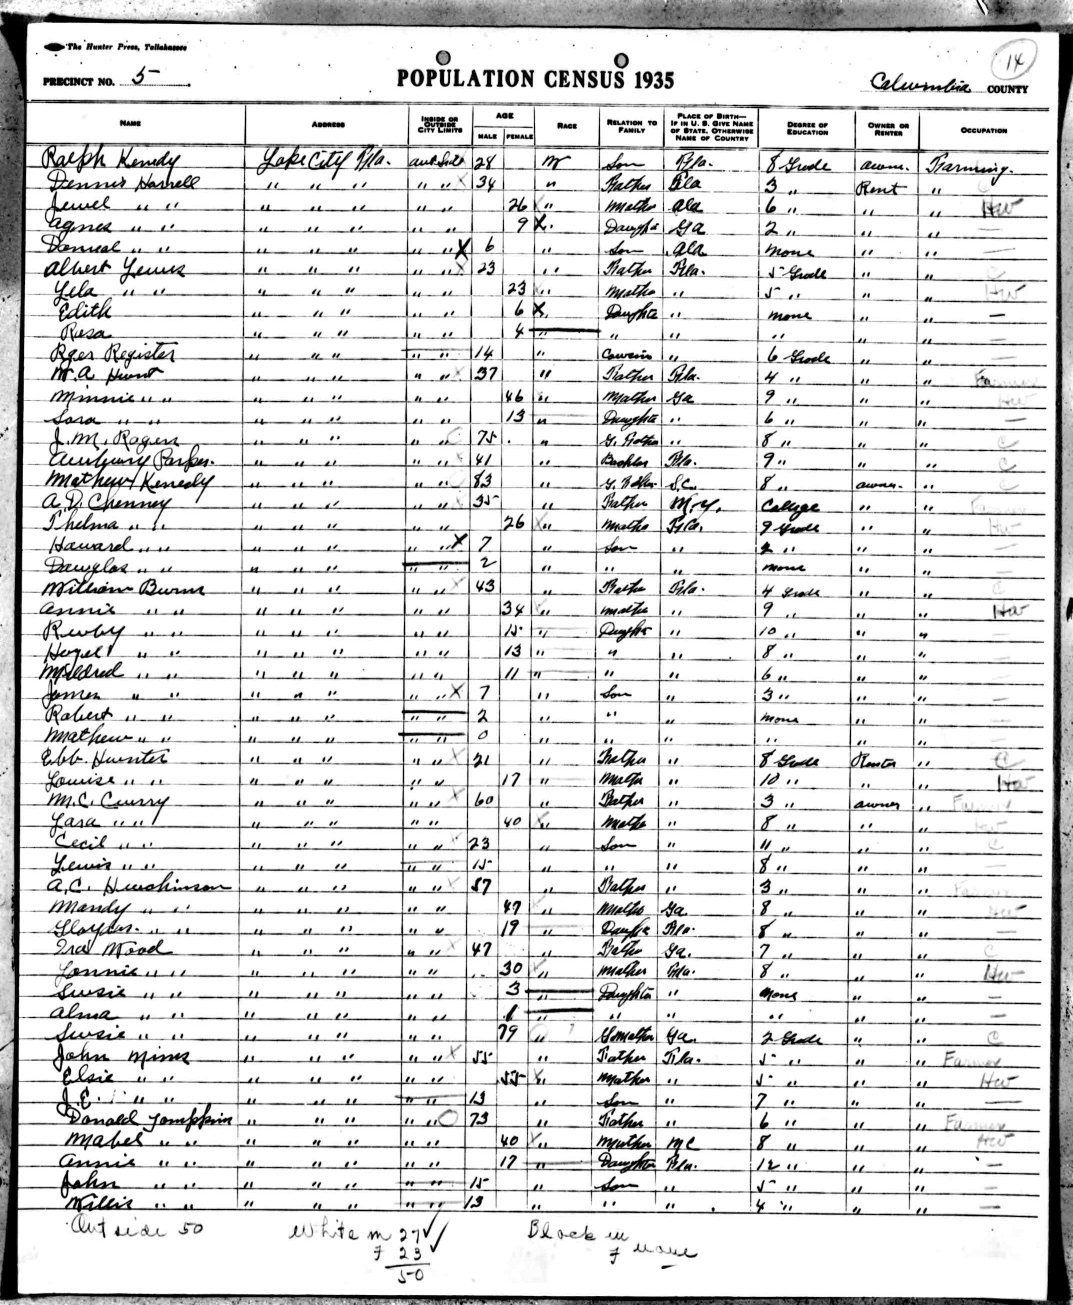 The Hunter Press, Tallahassee
14
PRECINCT NO. 5 POPULATION CENSUS 1935 Columbia COUNTY
NAME ADDRESS INSIDE OR OUTSIDE CITY LIMITS AGE MALE FEMALE RACE RELATION TO FAMILY PLACE OF BIRTH—IF IN U. S. GIVE NAME OF STATE. OTHERWISE NAME OF COUNTRY DEGREE OF EDUCATION OWNER OR RENTER OCCUPATION
Ralph Kenedy Lake City Fla. 28 W Son Fla. 8 Grade owner Farming.
Dennis Harrell " " " " " 34 " Father Fla 3 " Rent "
Jewel " " " " " " " 26 " Mother Ala 6 " " " HW
Agnes " " " " " " " 9 X " Ga 2 " " " —
" " " " " " " X 6 " Son Ala none " " —
Albert Lewis " " " " " 23 " Father Fla. 5 Grade " " C
Lela " " " " " " " 23 " Mother " 5 " " " HW
Edith " " " " " 6 X " Daughter " none " " —
Rosa " " " " " 4 " " " " " " —
Register " " " " " 14 " " 6 Grade " " —
W. A. Hunt " " " " " 37 " Father Fla. 4 " " " Farmer
Minnie " " " " " " " 46 " Mother Ga 9 " " " HW
Sara " " " " " " " 13 " Daughter " 6 " " " —
J. M. Rogers " " " " " 75 " G. Father " 8 " " " C
Parker " " " " " 41 " Fla. 9 " " " C
Mathew Kenedy " " " " " 83 " G. Father S.C. 8 " owner " C
A. D. Chenney " " " " " 35 " Father N.Y. College " " Farmer
Thelma " " " " " " " 26 " Mother Fla. 9 Grade " " HW
Haward " " " " " " " X 7 " Son " 2 " " " —
Douglas " " " " " " " 2 " " " none " " —
William Burns " " " " " 43 " Father Fla. 4 Grade " " C
Annie " " " " " " " 34 " Mother " 9 " " " HW
" " " " " " " 15 " Daughter " 10 " " " —
" " " " " " " 13 " " " 8 " " " —
Mildred " " " " " " " 11 " " " 6 " " " —
James " " " " " " " X 7 " Son " 3 " " " —
Robert " " " " " " " 2 " " " none " " —
Mathew " " " " " " " 0 " " " " " " —
Ebb. Hunter " " " " " 21 " Father " 8 Grade Renter " C
Louise " " " " " " " 17 " Mother " 10 " " " HW
M. C. Curry " " " " " 60 " Father " 3 " owner " Farmer
" " " " " " " 40 " Mother " 8 " " " HW
Cecil " " " " " " " 23 " Son " 11 " " " C
Lewis " " " " " " " 15 " " " 8 " " " —
A. C. Hutchinson " " " " " 57 " Father " 3 " " " Farmer
Mandy " " " " " " " 47 " Mother Ga. 8 " " " HW
" " " " " " " 19 " Daughter Fla. 8 " " " —
Ira Wood " " " " " 47 " Father Ga. 7 " " " C
Lonnie " " " " " " " 30 " Mother Fla. 8 " " " HW
Susie " " " " " " " 3 " Daughter " none " " —
Alma " " " " " " " 1 " " " " " " —
Susie " " " " " " " 79 " G. Mother Ga. 2 Grade " " C
John Mims " " " " " 55 " Father Fla. 5 " " " Farmer
Elsie " " " " " " " 55 " Mother " 5 " " " HW
J. E. " " " " " " " 13 " Son " 7 " " " —
Donald Tompkins " " " " " 73 " Father " 6 " " " Farmer
Mabel " " " " " " " 40 " Mother NC 8 " " " HW
Annie " " " " " " " 17 " Daughter Fla. 12 " " " —
John " " " " " " " 15 " Son " 5 " " " —
Willis " " " " " " " 13 " " " 4 " " " —
Out side 50 White m 27 ✓ Black m
F 23 ✓ F none
50